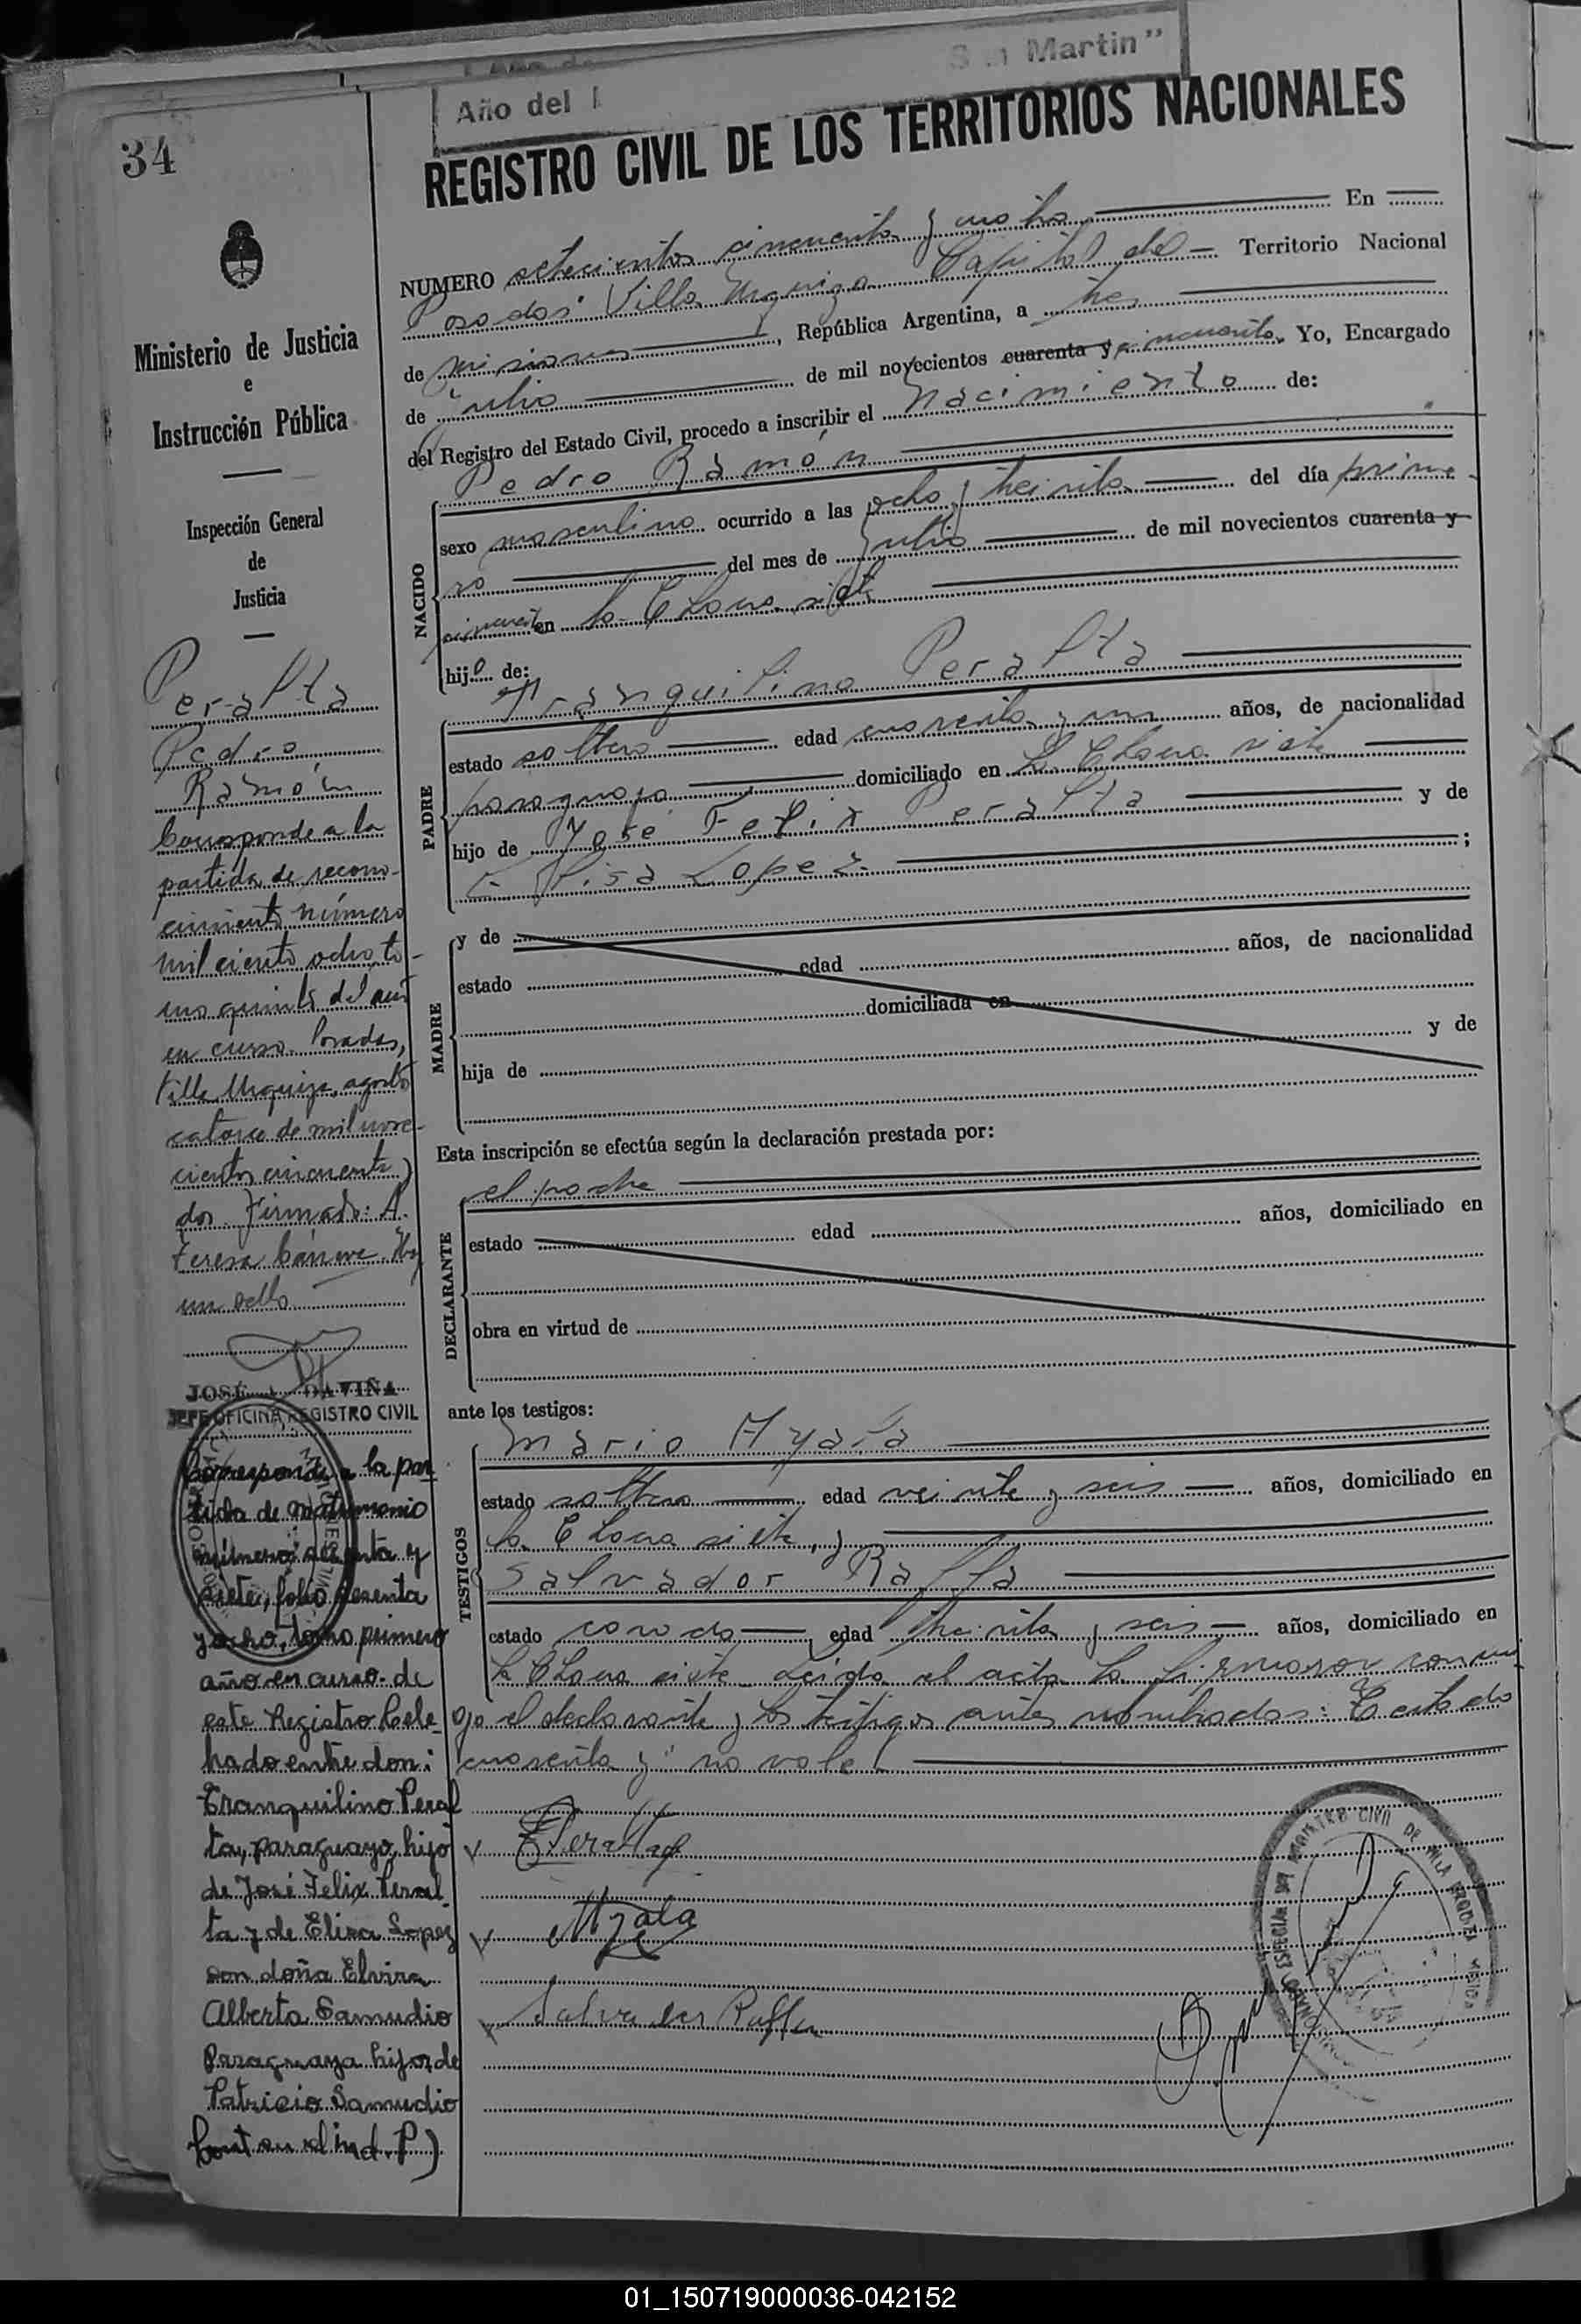 Año del
San Martin"
34
REGISTRO CIVIL DE LOS TERRITORIOS NACIONALES
Ministerio de Justicia
e
Instrucción Pública
Inspección General
de
Justicia
Peralta
Pedro
Ramón
Corresponde a la
partida de recono-
cimiento número
mil ciento ocho to-
mo quinto del año
en curso. Posadas,
Villa Urquiza, agosto
catorce de mil nove-
cientos cincuenta y
dos. Firmado: A.
Teresa Hay
un sello
JOSÉ DAVIÑA
JEFE OFICINA REGISTRO CIVIL
Corresponde a la par
tida de matrimonio
número y
siete, folio sesenta
y ocho, tomo primero
año en curso de
este Registro Cele-
brado entre don:
Tranquilino Peral
ta, paraguayo, hijo
de José Felix Peral
ta y de Elisa Lopez
con doña Elvira
Alberta Samudio
Paraguaya hija de
Patricio Samudio
Cont en el ind. P)
NUMERO setecientos cincuenta y En
Posadas Villa Urquiza Capital del Territorio Nacional
de Misiones, República Argentina, a tres
de julio de mil novecientos cuarenta y cincuenta. Yo, Encargado
del Registro del Estado Civil, procedo a inscribir el nacimiento de:
NACIDO
Pedro Ramón
sexo masculino ocurrido a las ocho y treinta del día prime-
ro del mes de julio de mil novecientos cuarenta y
cincuenta en la Chacra siete
hijo de:
PADRE
Tranquilino Peralta
estado soltero edad cuarenta y un años, de nacionalidad
paraguaya domiciliado en la Chacra siete
hijo de José Felix Peralta y de
Elisa Lopez ;
MADRE
y de
estado edad años, de nacionalidad
domiciliada en
hija de y de
Esta inscripción se efectúa según la declaración prestada por:
DECLARANTE
el padre
estado edad años, domiciliado en
obra en virtud de
ante los testigos:
TESTIGOS
Mario Ayala
estado soltero edad veinte y seis años, domiciliado en
la Chacra siete, y
Salvador Raffa
estado casado edad treinta y seis años, domiciliado en
la Chacra siete. Leída el acta la firmaron conmi-
go el declarante y los testigos antes nombrados: Testado
"cuarenta y" no vale
Peralta
MAyala
Salvador Raffa
REGISTRO CIVIL DE VILLA URQUIZA
01_150719000036-042152